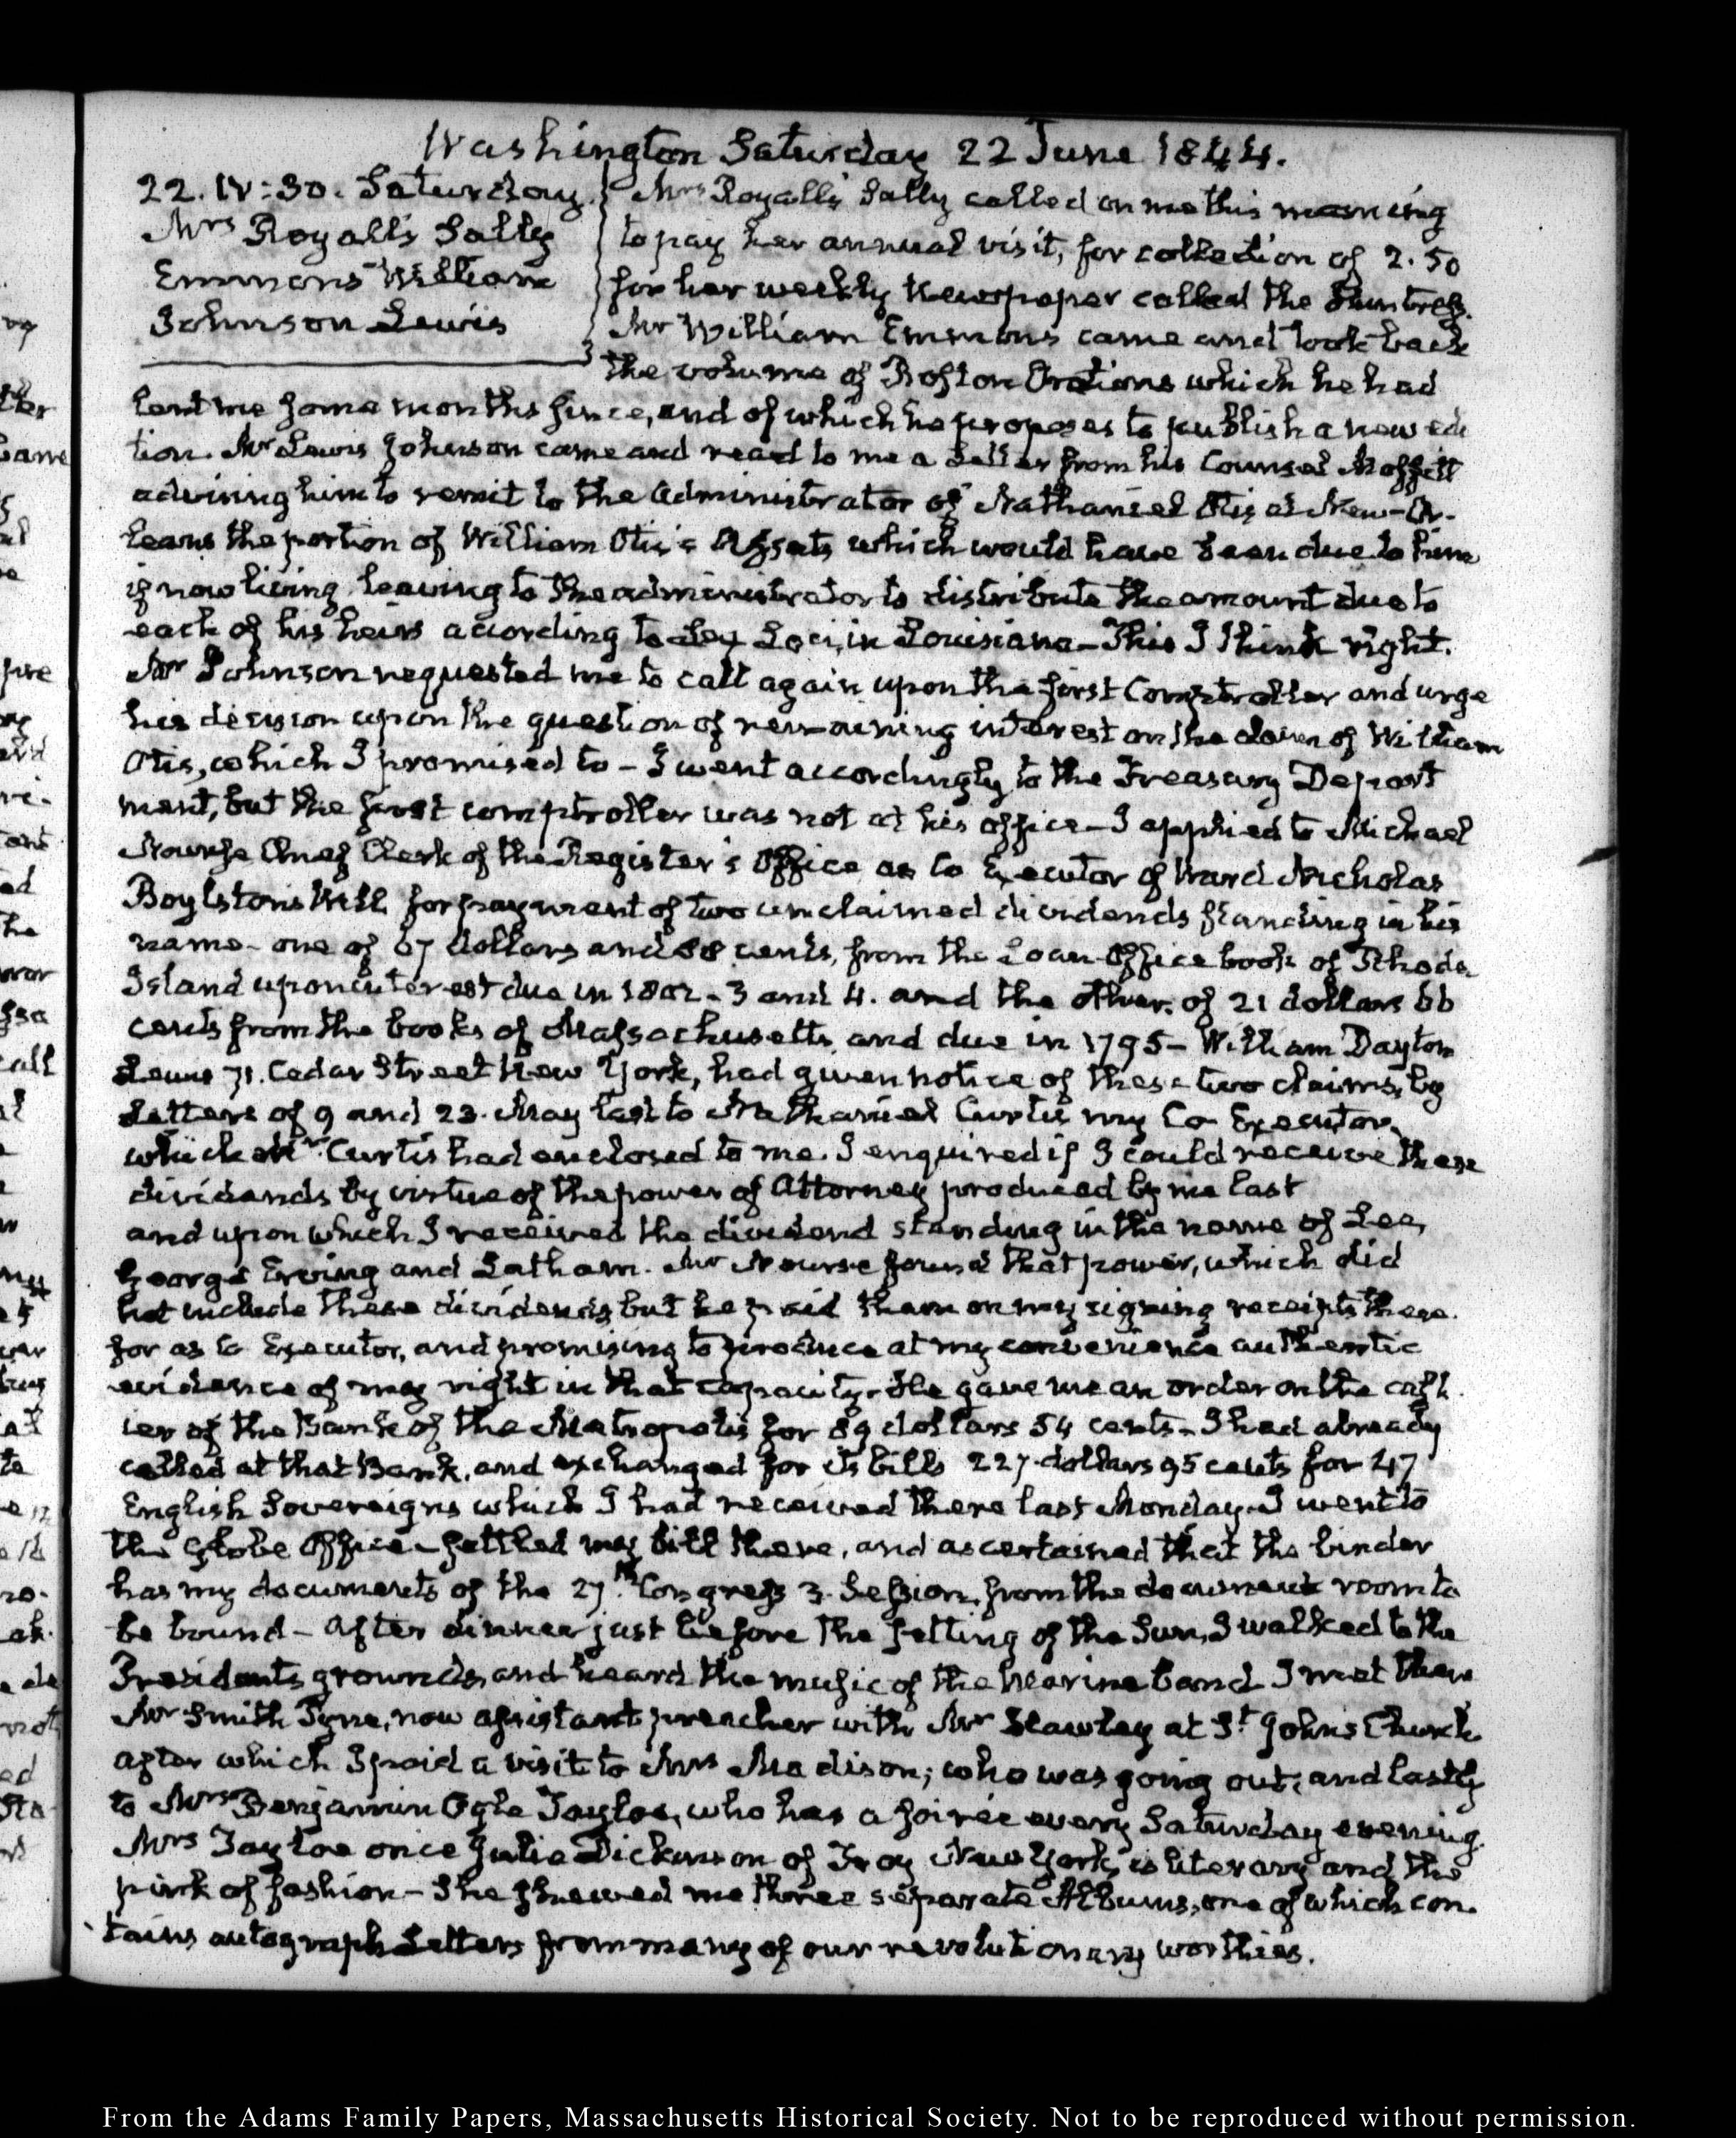 Washington Saturday 22 June 1844.
22. IV:30. Saturday.
Mrs Royall's Sally
Emmons William
Johnson Lewis
Mrs Royall's Sally called on me this morning
to pay her annual visit, for collection of 2.50
for her weekly Newspaper called the Huntress.
Mr William Emmons came and took back
the volume of Boston Orations which he had
lent me some months since, and of which he proposes to publish a new edi
tion. Mr Lewis Johnson came and read to me a Letter from his Counsel Moffitt
advising him to remit to the Administrator of Nathaniel Otis at New-Or-
leans the portion of William Otis's Assets which would have been due to him
if now living leaving to the administrator to distribute the amount due to
each of his heirs according to Lex Loci, in Louisiana - This I think right.
Mr Johnson requested me to call again upon the first Comptroller and urge
his decision upon the question of remaining interest on the claim of William
Otis, which I promised to - I went accordingly to the Treasury Depart
ment, but the first comptroller was not at his office - I applied to Michael
Nourse Chief Clerk of the Register's Office as Co Executor of Ward Nicholas
Boylston's Will for payment of two unclaimed dividends standing in his
name - one of 67 dollars and 88 cents, from the Loan Office book of Rhode
Island upon interest due in 1802 - 3 and 4. and the other of 21 dollars 66
cents from the books of Massachusetts, and due in 1795 - William Dayton
Lewis 71. Cedar Street New York, had given notice of these two claims, by
Letters of 9 and 23. May last to Nathaniel Curtis my Co Executor,
which Mr Curtis had enclosed to me. I enquired if I could receive these
dividends by virtue of the power of Attorney produced by me last
and upon which I received the dividend standing in the name of Lee,
George Erving and Latham. Mr Nourse found that power, which did
not include these dividends but he paid them on my signing receipts there-
for as Co Executor, and promising to produce at my convenience authentic
evidence of my right in that capacity - He gave me an order on the cash-
ier of the Bank of the Metropolis for 89 dollars 54 cents - I had already
called at that Bank, and exchanged for its bills 227 dollars 95 cents for 47
English Sovereigns which I had received there last Monday - I went to
the Globe Office - settled my bill there, and ascertained that the binder
has my documents of the 27th Congress 3. Session, from the document room to
be bound - After dinner just before the setting of the Sun, I walked to the
Presidents grounds, and heard the music of the Marine band - I met there
Mr Smith Pyne, now assistant preacher with Mr Hawley at St Johns Church
after which I paid a visit to Mrs Madison; who was going out; and lastly
to Mrs Benjamin Ogle Tayloe, who has a soirée every Saturday evening.
Mrs Tayloe once Julia Dickinson of Troy New York, is literary and the
pink of fashion - She shewed me three separate Albums, one of which con-
tains autograph Letters from many of our revolutionary worthies.
From the Adams Family Papers, Massachusetts Historical Society. Not to be reproduced without permission.